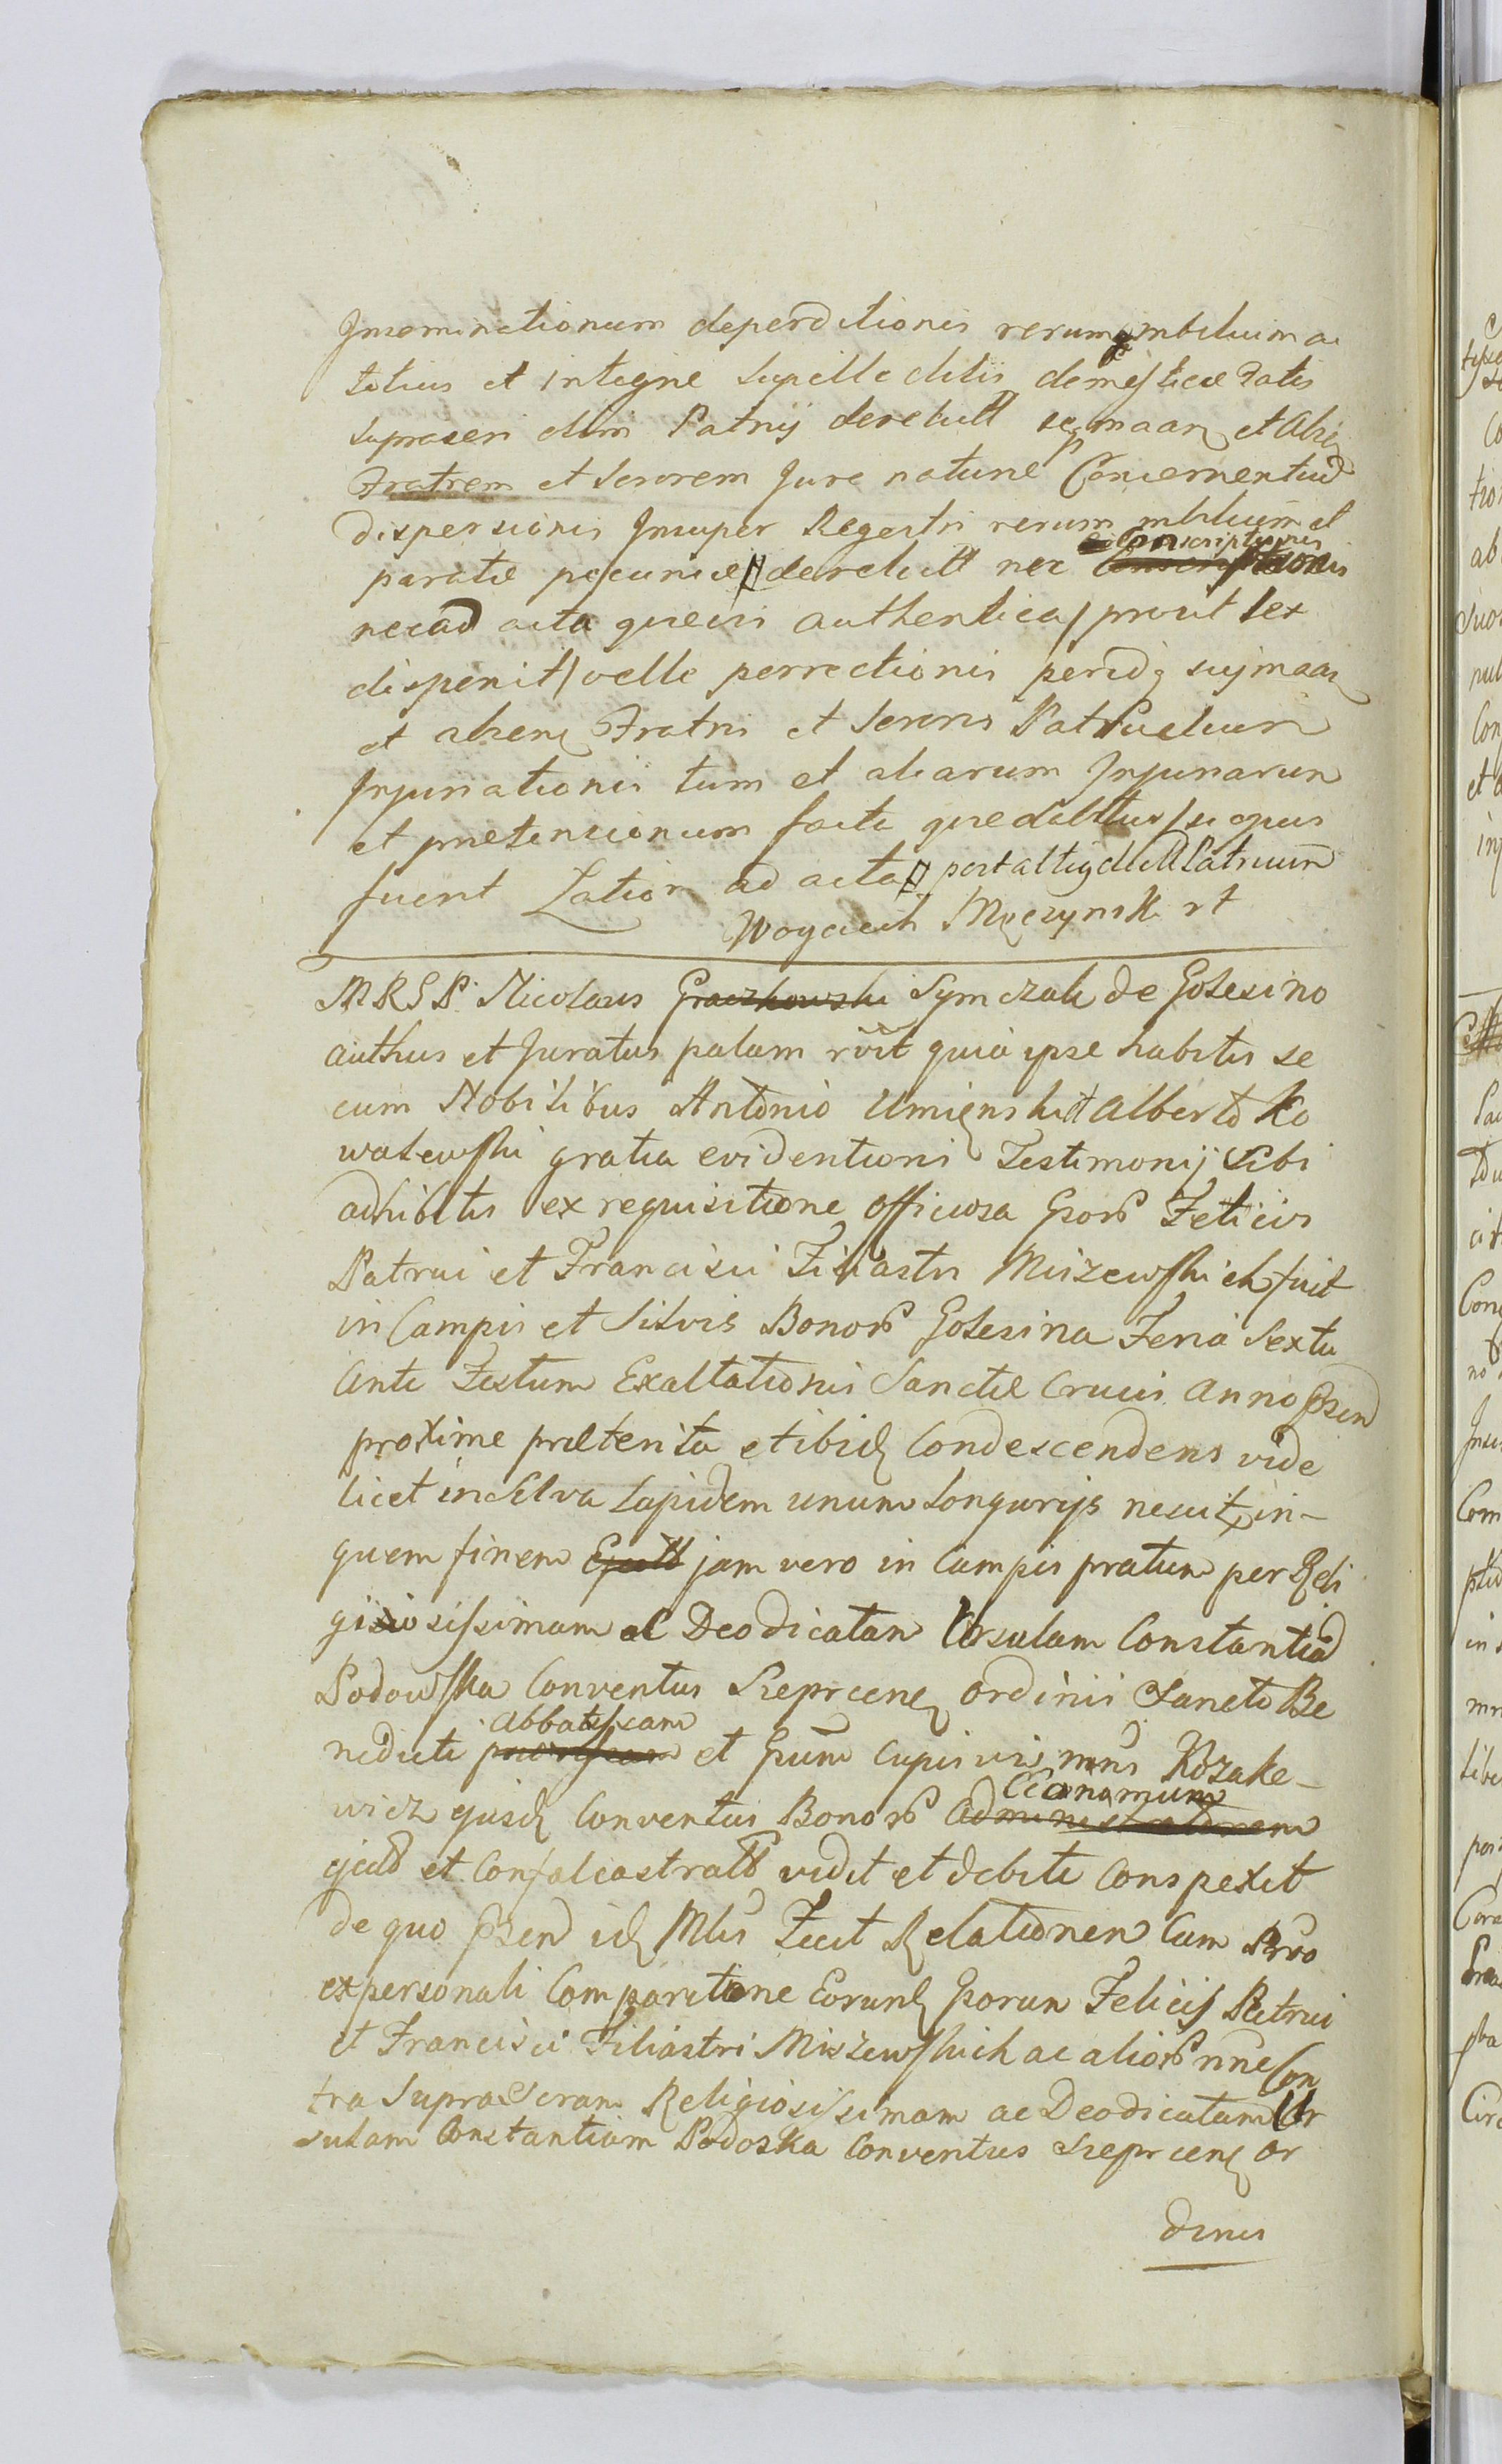 Inseminationum deperditionis rerum mbiliuim ac
totius et integræ supelle ctilis domesticæ Patris
supraseri olim Patrij derelictt se maan et Abseñ
Fratrem et Sororem Jure naturæ Concernentiud
dispersionis Insuper Regestri rerum mbilium et
paratæ pecuniæ derelictt nec Conscriptionis
necad acta quævis authentica / prout lex
disponit / velle perrectionis
et absen Fratris et Sororis Patruelium
Injuriationis tum et aliarum Injuriarum
et prætensionum facti quedabttus / si opus
fuerit Latior ad acta post Patruum
Woyciech Mączynski
MRSP. Nicolaus Graczkowski Symczak de Golesino
authus et Juratus palam rõit quia ipse habitis se
cum Nobilibus Antonio Umięnski et Alberto Ko
walewski gratia evidentioris Testimonij Sibi
adhibitis ex requisitione officiosa Gsorß Felicis
Patrui et Francisci Filiastri Miszewskich fuit
in Campis et Silvis Bonorß Golesina Feria Sexta
Ante Festum Exaltationis Sanctæ Crucis Anno Præsen
proxime præterita et ibid Condescendens vide
licet in Silva Lapidem unum Longurijs nescit in-
quem finem jam vero in Campis pratum per Reli
giosissimam ac Deodicatam Ursulam Constantiã
Podowska Conventus Sieprcen ordinis Sancti Be
nedicti Abbatissam et Gsum Cujusvis mnis Kozake-
wicz ejusd Conventus Bonorß Administratorem Œconomum
ejectt et Confalcastratt vidit et debite Conspexit
de quo Præsen id Mlis Fecit Relationem Cum Prvo
ex personali Comparitione Eorund Gsorum Felicis Patrui
et Francisci Filiastri Miszewskich ac aliorß nñe Con
tra Supra Scram Religiosissimam ac Deodicatam Ur
sulam Constantiam Podoska Conventus Sieprcen or
dinis